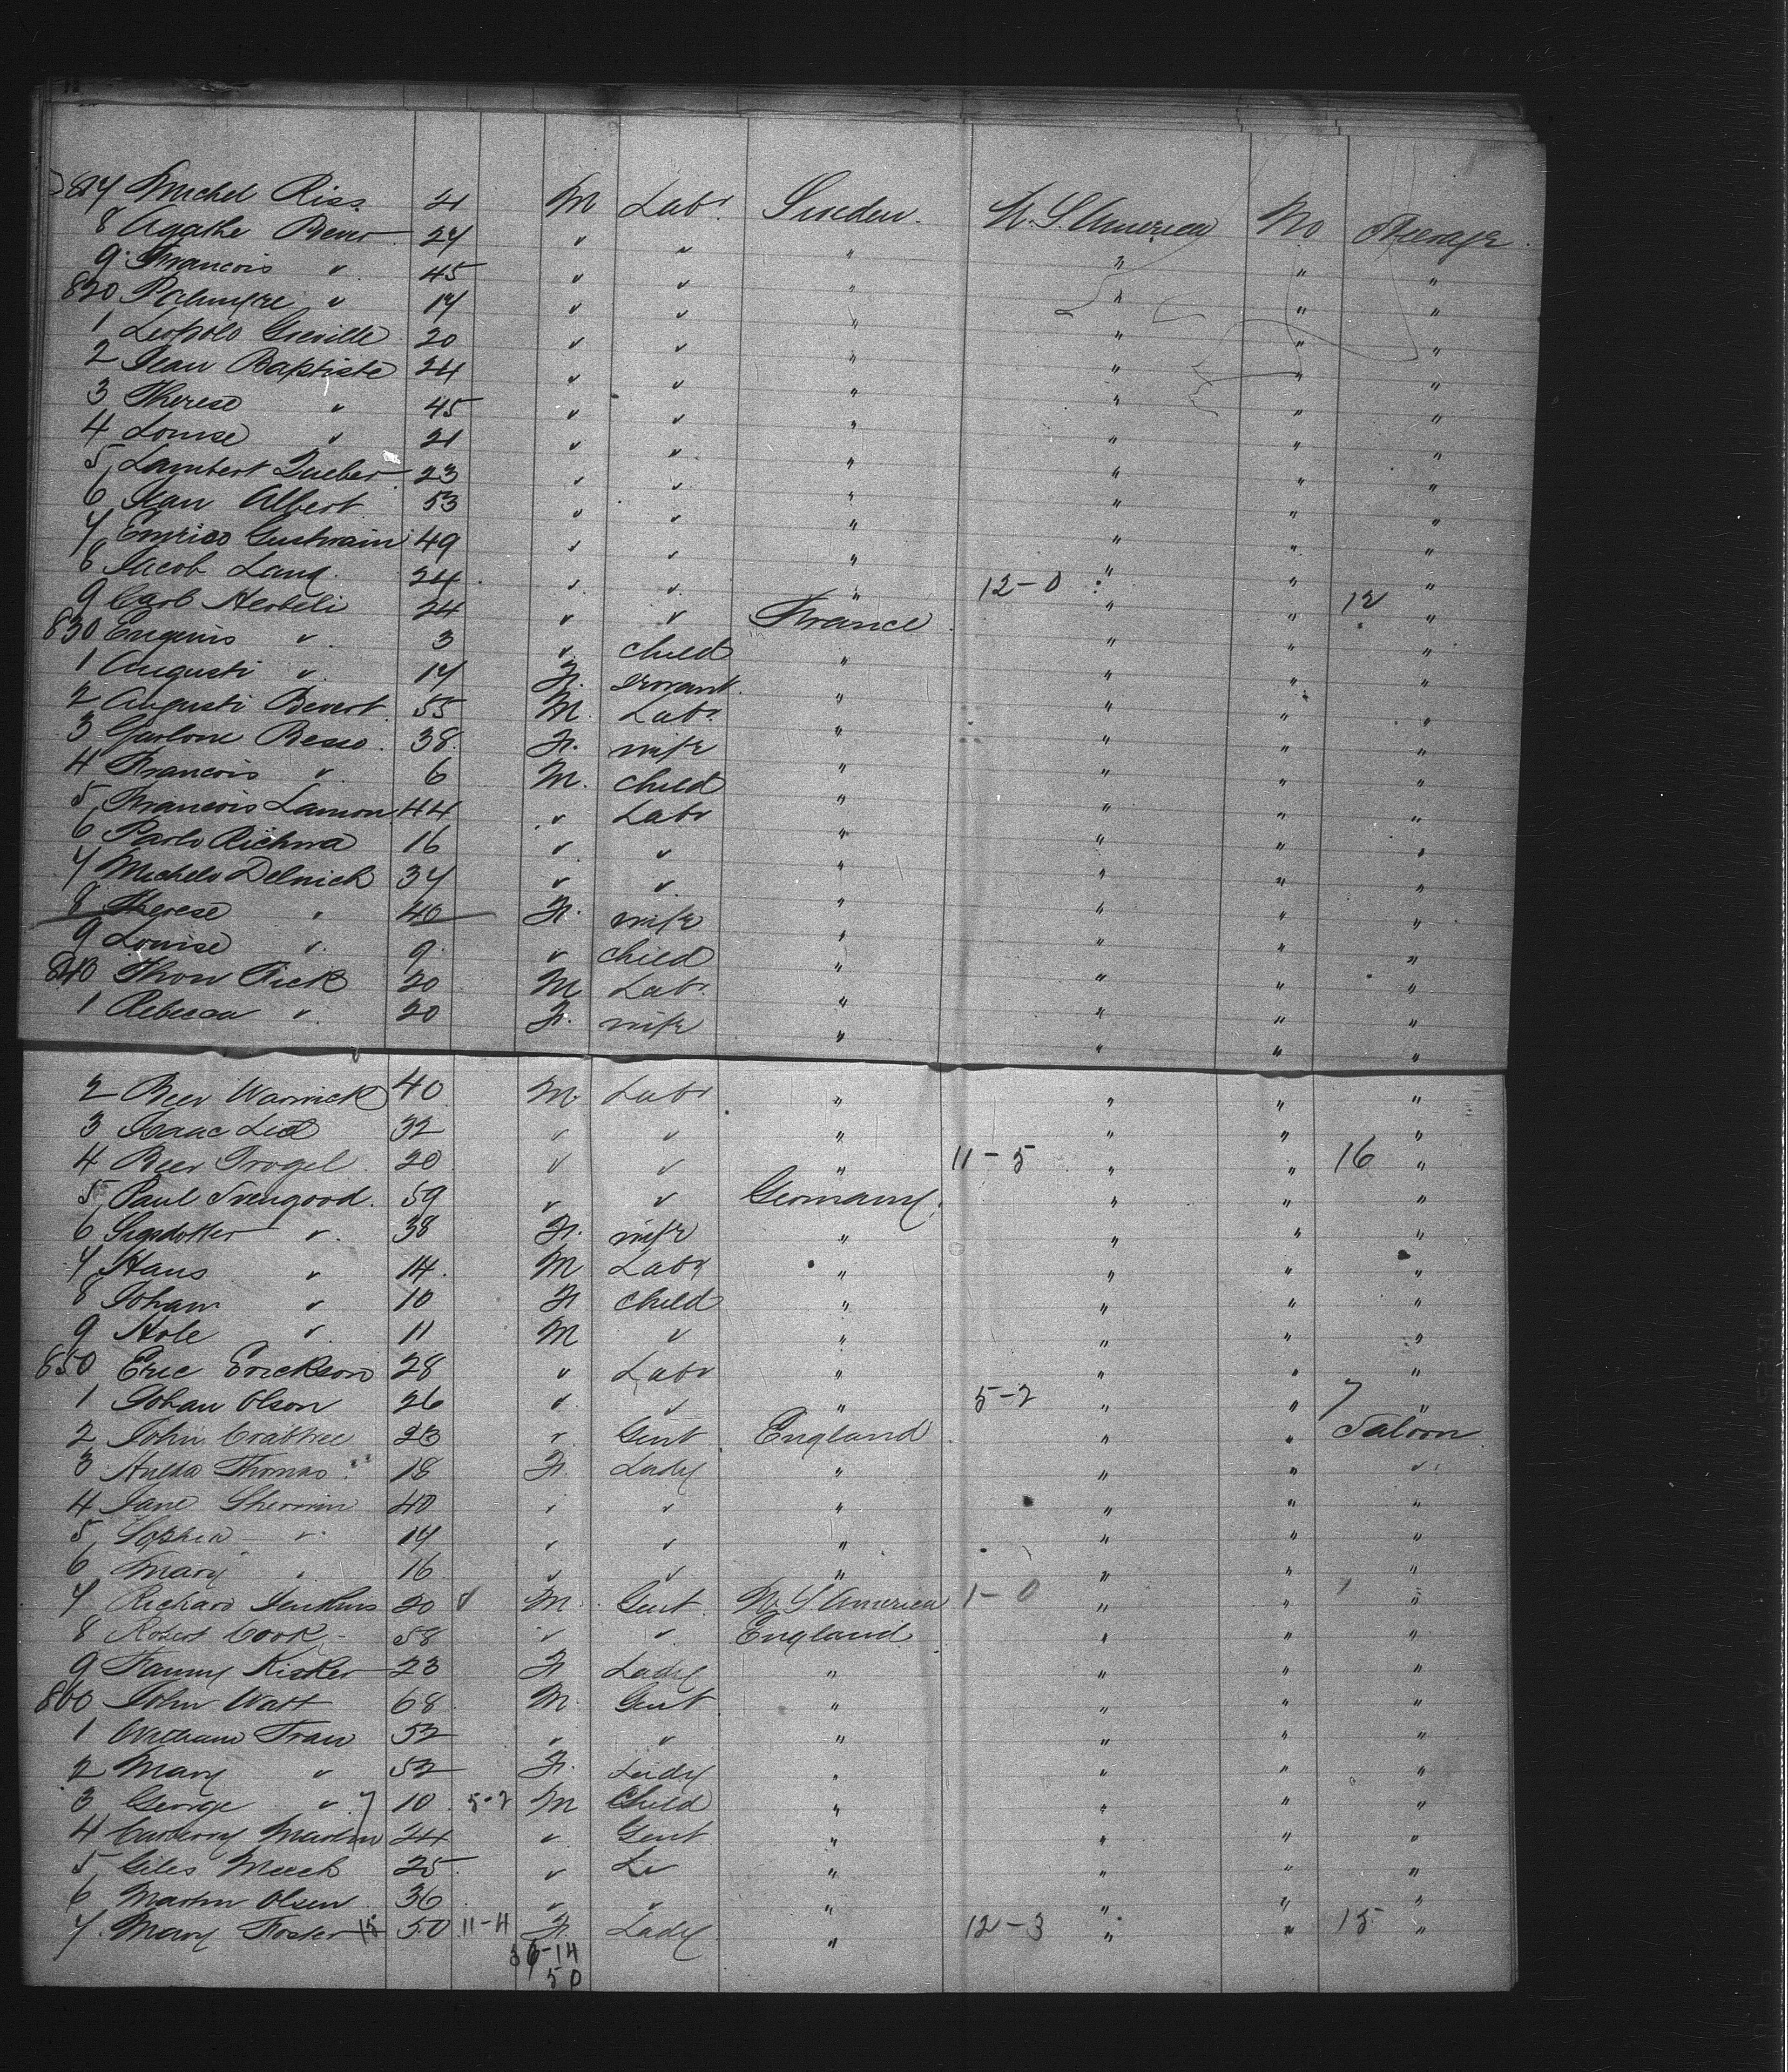 817 Michel Riss 21 M Labr. Sweden. U.S. America No Steerage.
8 Agathe Bever 27 " " " " " "
9 Francois " 45 " " " " " "
820 Palmyre " 17 " " " " " "
1 Leopold Greville 20 " " " " " "
2 Jean Baptiste 24 " " " " " "
3 Therese " 45 " " " " " "
4 Louise " 21 " " " " " "
5 Lambert Queber 23 " " " " " "
6 Jean Albert 53 " " " " " "
7 Enrico 49 " " " " " "
8 Jacob Lang. 24 " " " 12-0 " " 12 "
9 Carl Herbeli 24 " " France " " "
830 Eugenis " 3 " child " " " "
1 Augusti " 17 F. servant " " " "
2 Augusti Bevert 55 M. Labr " " " "
3 Besso 38 F. wife " " " "
4 Francois " 6 M. child " " " "
5 Francois Lamon 44 " Labr " " " "
6 Parlo Richma 16 " " " " " "
7 Michelo Delnick 37 " " " " " "
8 Therese " 40 F. wife " " " "
9 Louise " 9 " child " " " "
840 Thow Rick 20 M Labr. " " " "
1 Rebecca " 20 F. wife " " " "
2 Beer Warwick 40 M Labr " " " "
3 Isaac Lied 32 " " " " " "
4 Beer Trogel 20 " " " 11-5 " " 16 "
5 Paul Svengood. 59 " " Germany. " " "
6 Sigsdotter " 38 F. wife " " " "
7 Hans " 14 M Labr " " " "
8 Johan " 10 F child " " " "
9 Hole " 11 M " " " " "
850 Eric Erickson 28 " Labr " " " "
1 Johan Olson 26 " " " 5-2 " " 7 "
2 John Crabtree 23 " Gent England " " Saloon
3 Hulda Thomas 18 F. Lady " " " "
4 Jane Sherwin 40 " " " " " "
5 Sophia " 17 " " " " " "
6 Mary " 16 " " " " " "
7 Richard Jenkins 20 M. Gent U.S. America 1-0 " " 1 "
8 Robert Cook 58 " " England " " "
9 Fanny Kisker 23 F Lady " " " "
860 John Watt 68 M. Gent " " " "
1 William Traw 52 " " " " " "
2 Mary " 52 F. Lady " " " "
3 George " 7 10 5-2 M Child " " " "
4 Carberry Martin 24 " Gent " " " "
5 Giles Meech 25 " " " " "
6 Martin Olsen 36 " " " " " "
7 Mary Foster 15 50 11-4 F. Lady " 12-3 " " 15 "
36-14
50